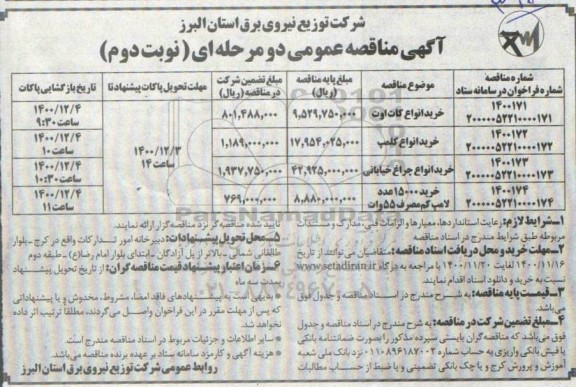 شرکت توزیع نیروی برق استان البرز
آگهی مناقصه عمومی دو مرحله ای (نوبت دوم)
شماره مناقصه شماره فراخوان در سامانه ستاد | موضوع مناقصه | مبلغ پایه مناقصه (ریال) | مبلغ تضمین شرکت در مناقصه (ریال) | مهلت تحویل پاکات پیشنهاد تا | تاریخ بازگشایی پاکات
۱۴۰۰۱۷۱ ۲۰۰۰۰۰۵۲۲۱۰۰۰۰۱۷۱ | خرید انواع کات اوت | ۹,۵۲۹,۷۵۰,۰۰۰ | ۸۰۱,۴۸۸,۰۰۰ | ۱۴۰۰/۱۲/۳ ساعت ۱۴ | ۱۴۰۰/۱۲/۴ ساعت ۹:۳۰
۱۴۰۰۱۷۲ ۲۰۰۰۰۰۵۲۲۱۰۰۰۰۱۷۲ | خرید انواع کلمپ | ۱۷,۹۵۴,۰۲۵,۰۰۰ | ۱,۱۸۹,۰۰۰,۰۰۰ | ۱۴۰۰/۱۲/۴ ساعت ۱۰
۱۴۰۰۱۷۳ ۲۰۰۰۰۰۵۲۲۱۰۰۰۰۱۷۳ | خرید انواع چراغ خیابانی | ۴۲,۹۲۵,۰۰۰,۰۰۰ | ۱,۹۳۷,۷۵۰,۰۰۰ | ۱۴۰۰/۱۲/۴ ساعت ۱۰:۳۰
۱۴۰۰۱۷۴ ۲۰۰۰۰۰۵۲۲۱۰۰۰۰۱۷۴ | خرید ۱۵۰۰۰ عدد لامپ کم مصرف ۵۵ وات | ۸,۸۸۰,۰۰۰,۰۰۰ | ۷۶۹,۰۰۰,۰۰۰ | ۱۴۰۰/۱۲/۴ ساعت ۱۱
۱-شرایط لازم: رعایت استانداردها، معیارها و الزامات فنی، مدارک و مستندات
مربوطه طبق شرایط مندرج در اسناد مناقصه
۲-مهلت خرید و محل دریافت اسناد مناقصه: متقاضیان می توانند از تاریخ
۱۴۰۰/۱۱/۱۶ لغایت ۱۴۰۰/۱۱/۲۰ با مراجعه به درگاه www.setadiran.ir
نسبت به خرید و دانلود اسناد اقدام نمایند.
۳-قیمت پایه مناقصه: به شرح مندرج در اسناد مناقصه و جدول فوق
می باشد.
۴-مبلغ تضمین شرکت در مناقصه: به شرح مندرج در اسناد مناقصه و جدول
فوق می باشد که مناقصه گران بایستی سپرده مذکور را بصورت ضمانتنامه بانکی
یا فیش بانکی واریزی به حساب شماره ۰۱۱۰۸۹۶۱۸۷۰۰۲ نزد بانک ملی شعبه
آموزش و پرورش کرج و یا چک بانکی تضمینی و یا ضبط از حساب مطالبات
تایید شده مناقصه گر نزد مناقصه گزار ارائه نمایند.
۵-محل تحویل پیشنهادات: دبیرخانه امور تدارکات واقع در کرج - بلوار
طالقانی شمالی - بالاتر از پل آزادگان - ابتدای بلوار امام رضا(ع) - طبقه دوم
۶-زمان اعتبار پیشنهاد قیمت مناقصه گران: از تاریخ تحویل پیشنهاد
بمدت سه ماه
* بدیهی است به پیشنهادهای فاقد امضاء، مشروط، مخدوش و یا پیشنهاداتی
که پس از مهلت مقرر در این فراخوان واصل می گردند، مطلقا ترتیب اثر داده
نخواهد شد.
* سایر اطلاعات و جزئیات مربوط در اسناد مناقصه مندرج است.
* هزینه آگهی و کارمزد سامانه ستاد بر عهده برنده مناقصه می باشد.
روابط عمومی شرکت توزیع نیروی برق استان البرز